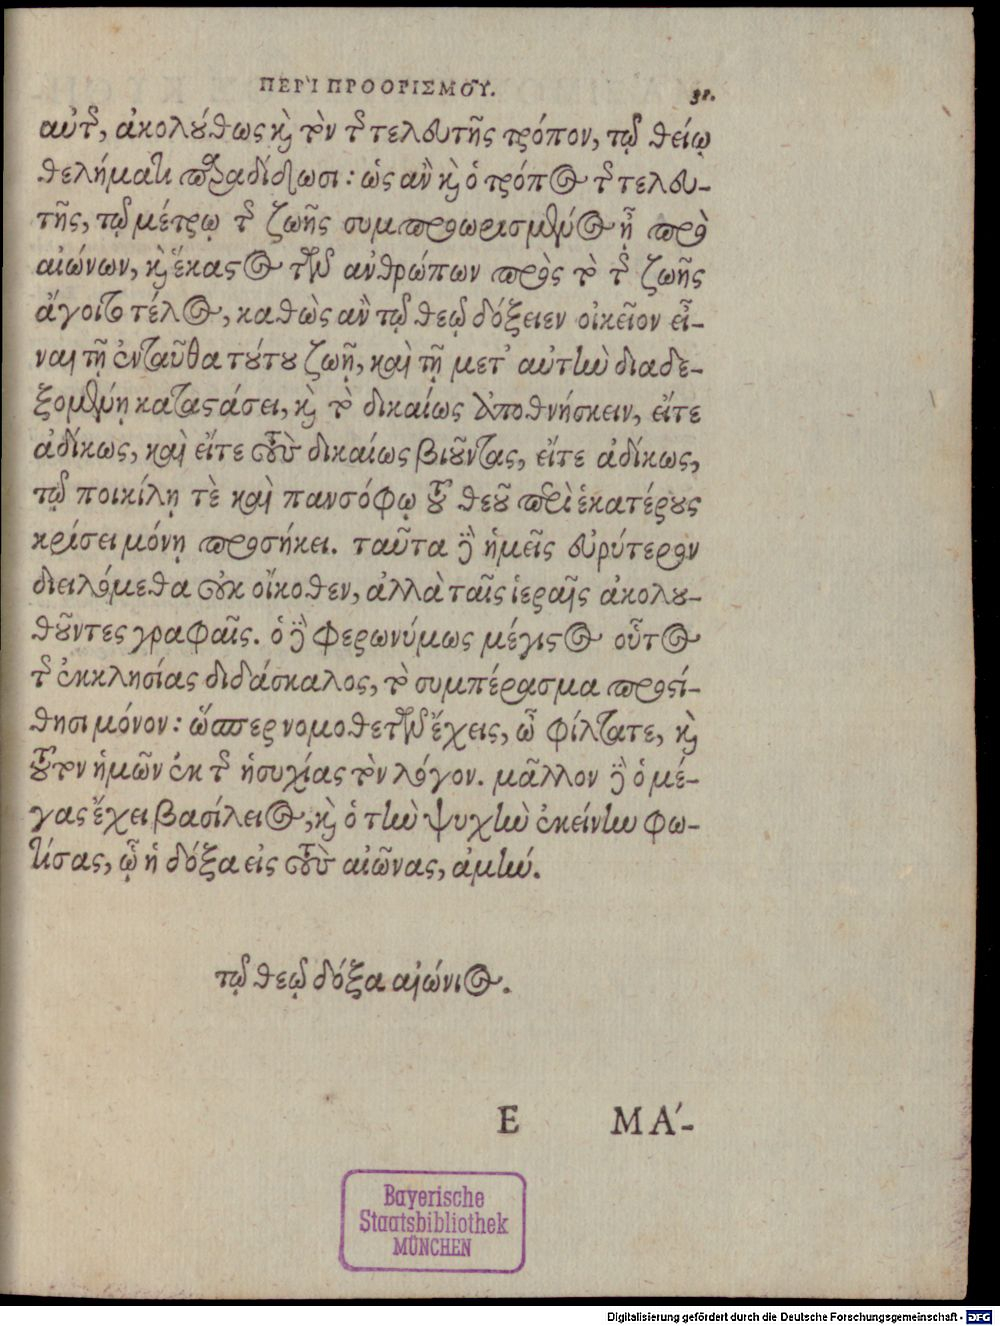 ΠΕΡῚ ΠΡΟΟΡΙΣΜΟΥ͂.
αὐτοῦ, ἀκολούθως καὶ τὸν τῆς τελευτῆς τρόπον, τῷ θείῳ
θελήματι παραδίδωσι: ὡς ἂν καὶ ὁ τρόπος τῆς τελευ-
τῆς, τῷ μέτρῳ τῆς ζωῆς συμπροωρισμένος ᾖ πρὸ
αἰώνων, καὶ ἕκαστος τῶν ἀνθρώπων πρὸς τὸ τῆς ζωῆς
ἄγοιτο τέλος, καθὼς ἂν τῷ θεῷ δόξειεν οἰκεῖον εἶ-
ναι τῇ ἐνταῦθα τούτου ζωῇ, καὶ τῇ μετ' αὐτὴν διαδε-
ξομένῃ καταστάσει, καὶ τὸ δικαίως ἀποθνήσκειν, εἴτε
ἀδίκως, καὶ εἴτε τοὺς δικαίως βιοῦντας, εἴτε ἀδίκως,
τῷ ποικίλῃ τὲ καὶ πανσόφῳ τοῦ θεοῦ περὶ ἑκατέρους
κρίσει μόνῃ προσήκει. ταῦτα γὰρ ἡμεῖς εὐρύτερον
διειλόμεθα οὐκ οἴκοθεν, ἀλλὰ ταῖς ἱεραῖς ἀκολου-
θοῦντες γραφαῖς. ὁ γὰρ φερωνύμως μέγιστος οὗτος
τῆς ἐκκλησίας διδάσκαλος, τὸ συμπέρασμα προστί-
θησι μόνον: ὥσπερ νομοθετῶν ἔχεις, ὦ φίλτατε, καὶ
τοῦτον ἡμῶν ἐκ τῆς ἡσυχίας τὸν λόγον. μᾶλλον γὰρ ὁ μέ-
γας ἔχει βασίλειος, καὶ ὁ τὴν ψυχὴν ἐκείνην φω-
τίσας, ᾧ ἡ δόξα εἰς τοὺς αἰῶνας, ἀμήν.
τῷ θεῷ δόξα αἰώνιος.
E ΜΑ΄-
Bayerische
Staatsbibliothek
MÜNCHEN
Digitalisierung gefördert durch die Deutsche Forschungsgemeinschaft - DFG